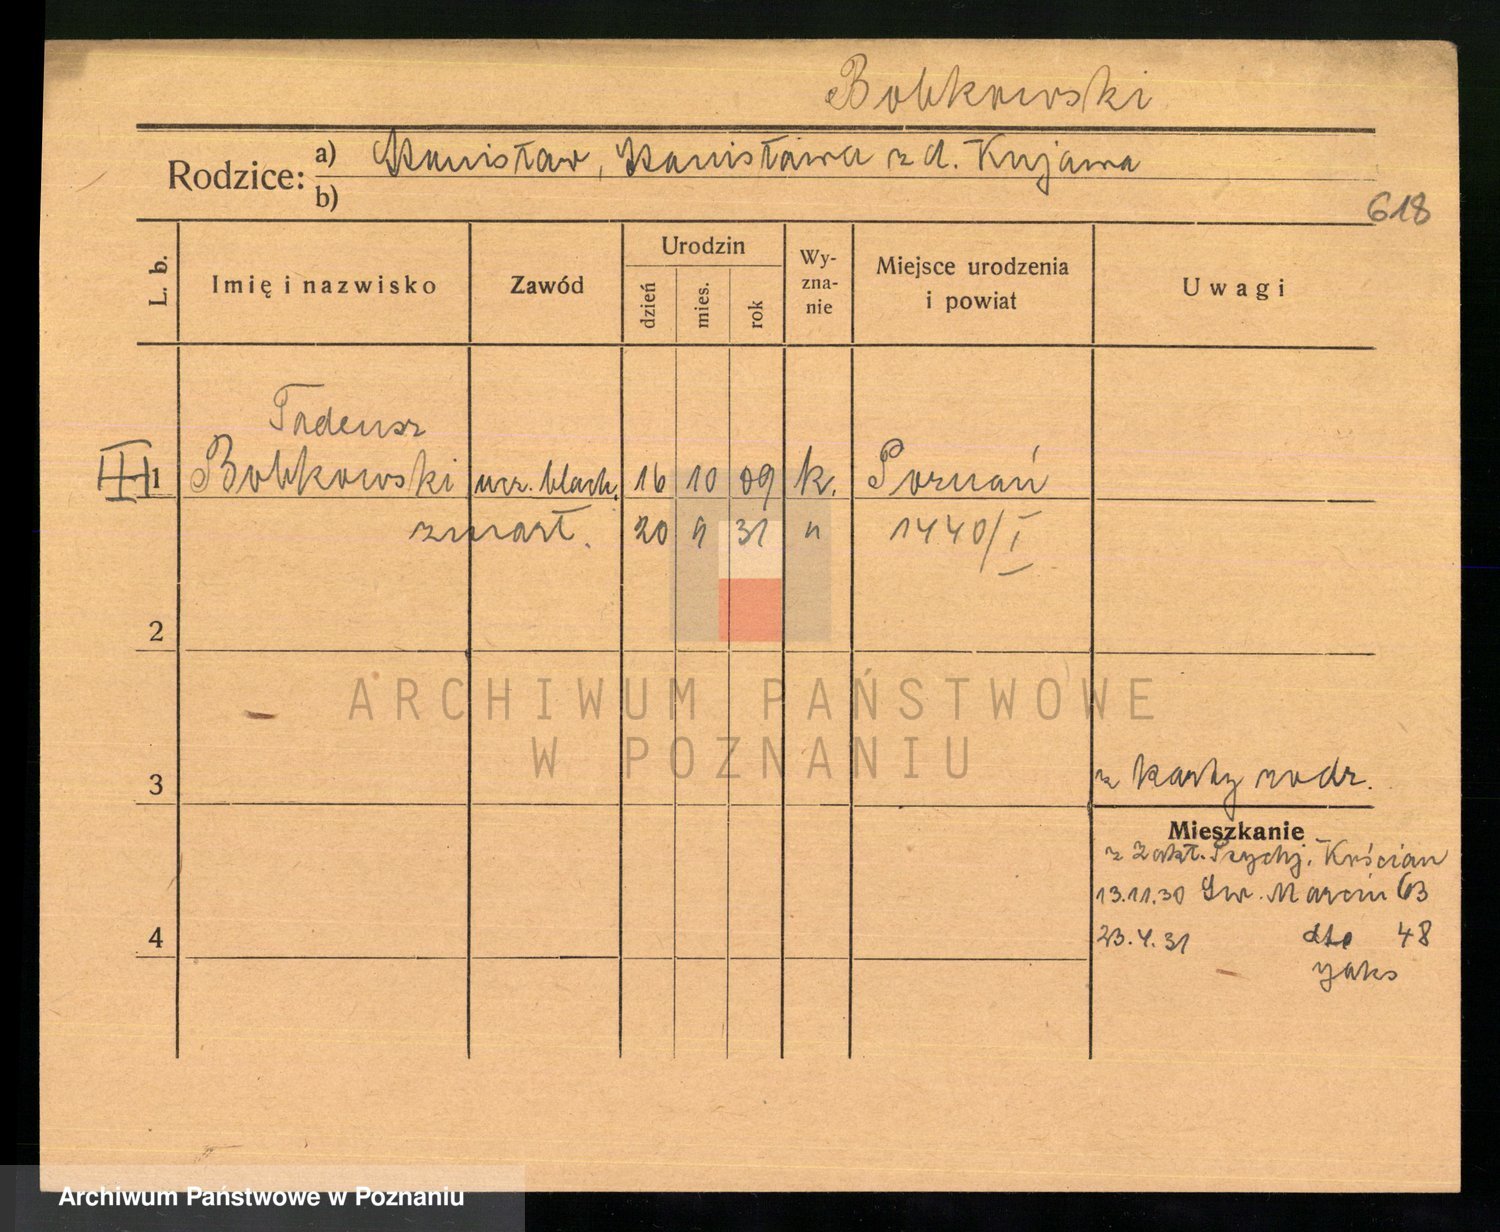 Bobkowski
Rodzice: a) Stanisław, Stanisława z d. Kujawa
b)
618
L. b.
Imię i nazwisko
Zawód
Urodzin
dzień
mies.
rok
Wy-
zna-
nie
Miejsce urodzenia
i powiat
Uwagi
Tadeusz
1 Bobkowski ucz. blach. 16 10 09 k. Poznań
zmarł. 20 9 31 " 1440/I
2
ARCHIWUM PAŃSTWOWE
W POZNANIU
3
z karty rodz.
Mieszkanie
z Zakł. Psychj. Kościan
13.11.30 Św. Marcin 63
4
23.4.31 dto 48
Archiwum Państwowe w Poznaniu